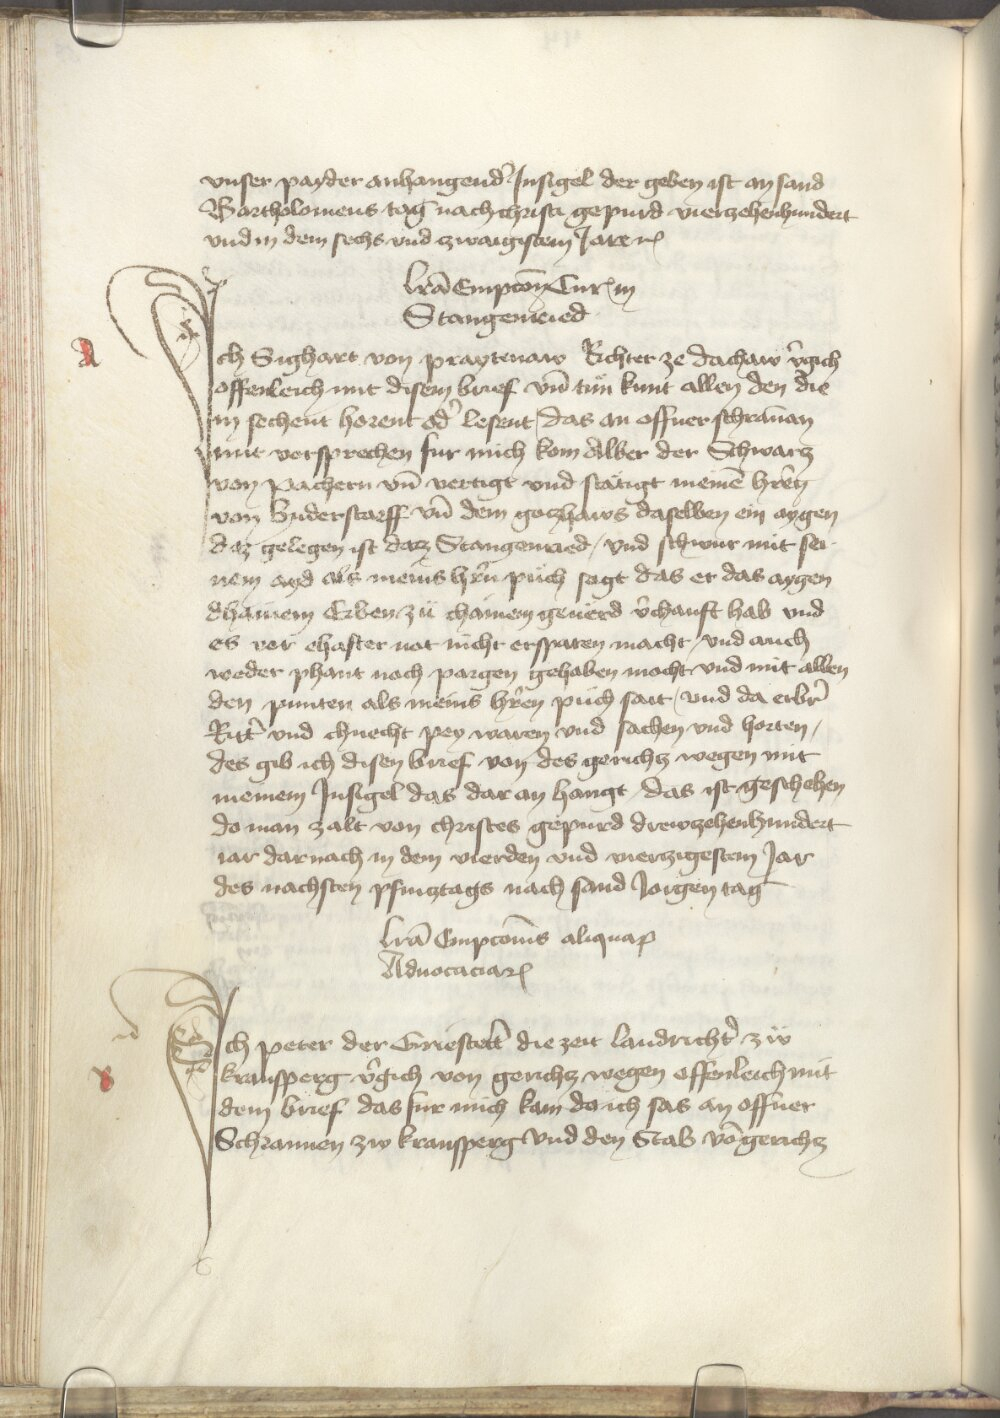 vnser payder anhangend' Insigel der geben ist an sand
Bartholomeus tag nach christi gepurd vierzehenhundert
vnd in dem sechs vnd zwaigistem Jare
lrā Empcōn Cur' in
Stangenried
Ich Sighart von praytenaw Richter ze dachaw v'gich
offenleich mit disem brief vn̄ tün kunt allen den die
in sechent horent od' lesent / das an offner schrānan
mit vorsprechen fur mich kom Alber der Schwarz
von pachern vn̄ vertigt vnd stätigt meinē hr̄en
von Vnderstorff vn̄ dem gotzhaws daselben ein aygen
daz gelegen ist datz Stangenried / vnd schwur mit sei
nem ayd als meins hr̄n püch sagt das er das aygen
dhainem Erben zü chainem geuerd v'chauft hab vnd
es vor ehafter not nicht ersparen macht / vnd auch
weder phant noch porgen gehaben mocht vnd mit allen
den punten als meins hr̄en püch sait / vnd da erbr'
Ritt' vnd chnecht pey waren vnd sachen vnd horten /
des gib ich disen brief von des gerichz wegen mit
meinem Insigel das dar an hangt / das ist geschehen
do man zalt von christes gepurd drewzehenhundert
iar darnach in dem vierden vnd vierzigestem Jar
des nachsten pfinztags nach sand Jorgen tag
lrā Empcōnis aliquar'
Aduocaciar'
Ich peter der Griestett' die zeit landricht' zw
kransperg v'gich von gerichz wegen offenleich mit
dem brief das fur mich kam do ich sas an offner
Schrannen zw kransperg vnd den Stab vō gerichz